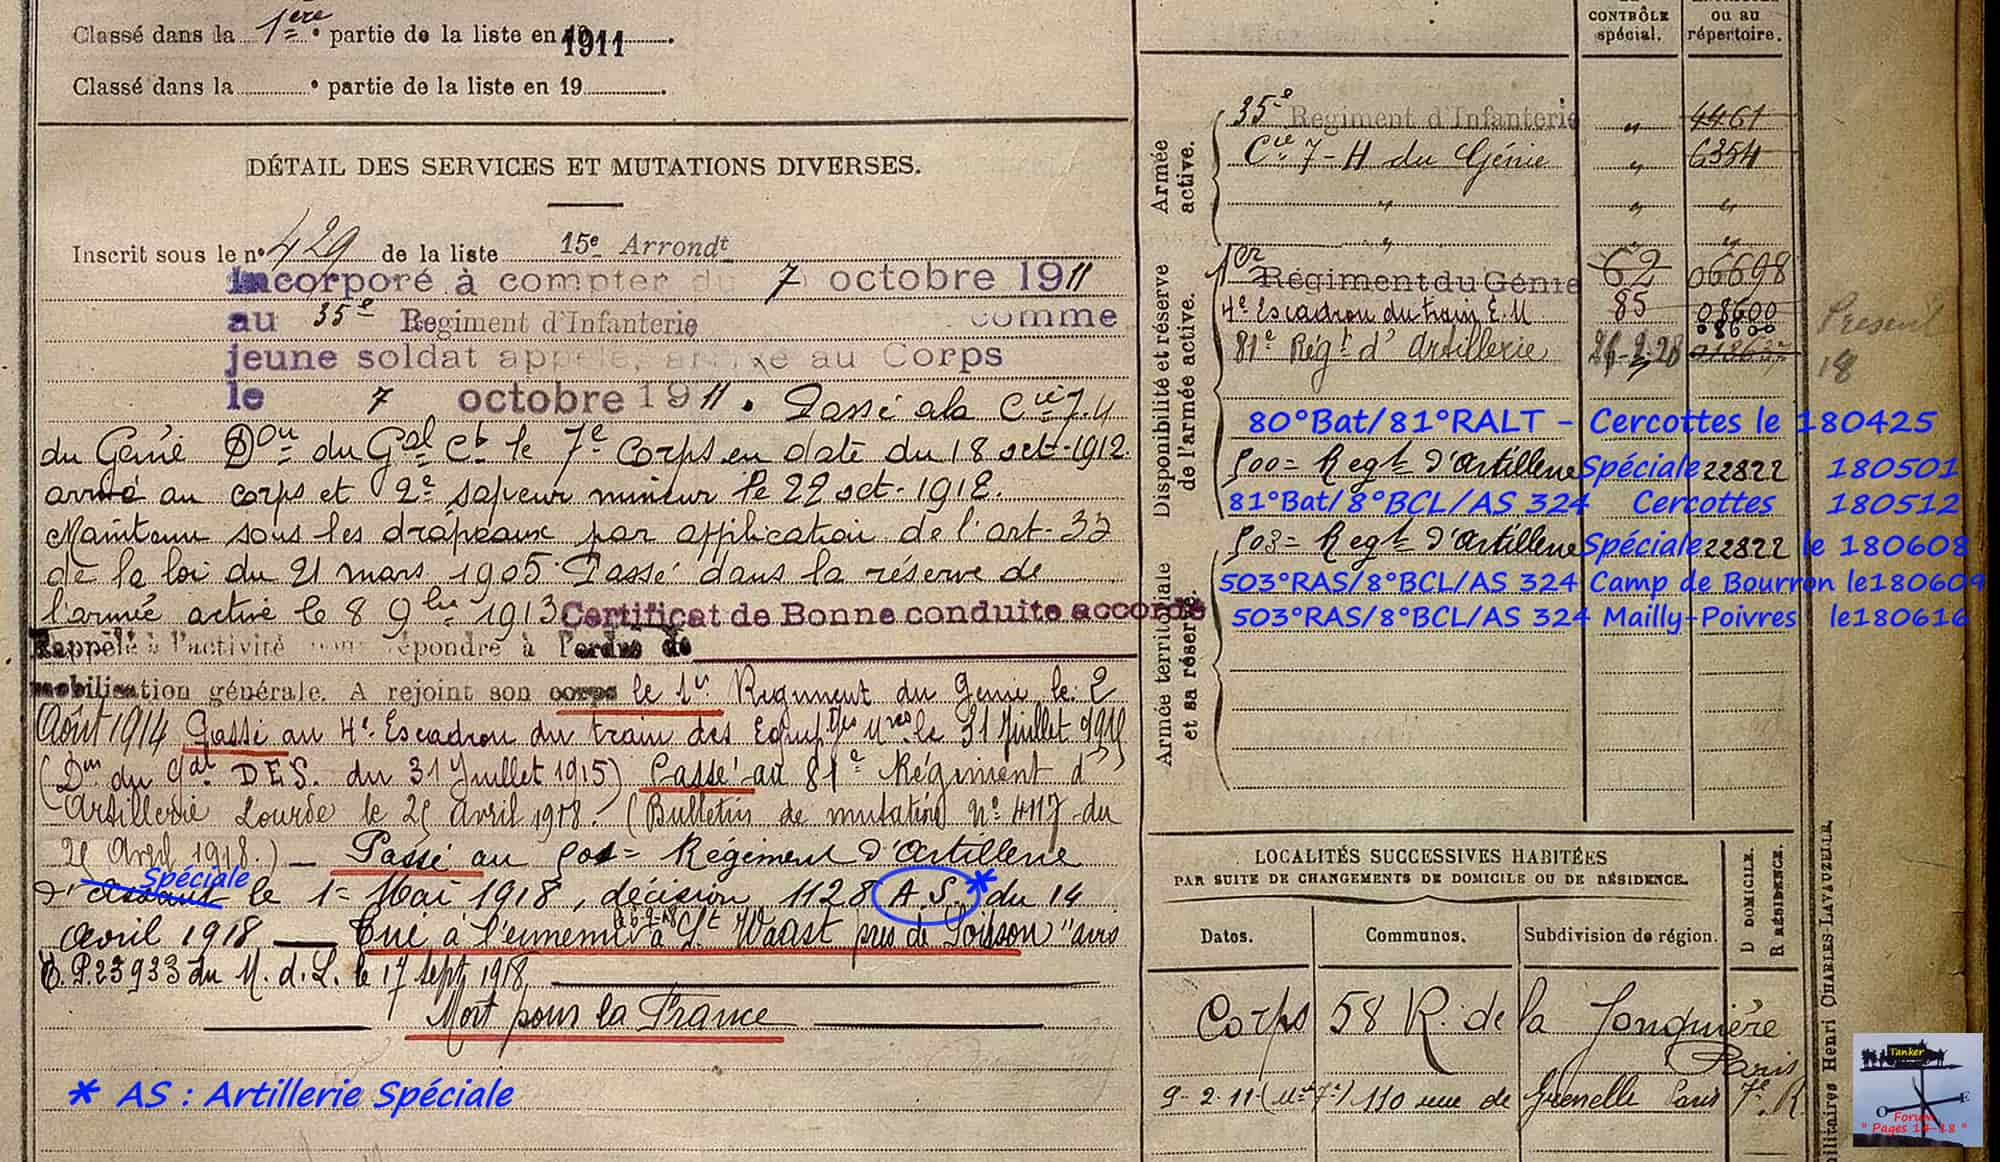 Classé dans la 1ère partie de la liste en 1911
Classé dans la e partie de la liste en 19
DÉTAIL DES SERVICES ET MUTATIONS DIVERSES.
Inscrit sous le n° 429 de la liste 15e Arrondt
Incorporé à compter du 7 octobre 1911
au 35e Regiment d'Infanterie comme
jeune soldat appelé, arrivé au Corps
le 7 octobre 1911. Passé à la Cie 7.H
du Génie Don du Gal Ct le 7e Corps en date du 18 oct. 1912.
arrivé au corps et 2e sapeur mineur le 22 oct. 1912.
Maintenu sous les drapeaux par application de l'art. 33
de la loi du 21 mars 1905. Passé dans la réserve de
l'armée active le 8 9bre 1913 Certificat de Bonne conduite accordé
Rappelé à l'activité pour répondre à l'ordre de
mobilisation générale. A rejoint son corps le 1er Régiment du Génie le 2
Août 1914 Passé au 4e Escadron du train des Equipges Mres le 31 Juillet 1915
(Don du Gal D.E.S. du 31 Juillet 1915) Passé au 81e Régiment d'
Artillerie Lourde le 25 avril 1918. (Bulletin de mutation N° 4117 du
25 Avril 1918.) — Passé au Régiment d'Artillerie
Spéciale
d'assaut le 1= Mai 1918, décision 1128 A.S.* du 14
avril 1918 — Tué à l'ennemi à St Waast près de Soisson "avis
P.23933 du M.d.L. le 17 sept 1918
Mort pour la France
* AS : Artillerie Spéciale
CONTRÔLE spécial.
ou au répertoire.
Armée active.
35e Regiment d'Infanterie " 4461
Cie 7-H du Génie " 6354
" " "
" " "
Disponibilité et réserve de l'armée active.
1er Régiment du Génie 62 06698
4e Escadron du train E.M 85 08600
08600
81e Régt d'Artillerie
Present
18
80°Bat/81°RALT - Cercottes le 180425
500= Regt d'Artillerie Spéciale 22822 180501
81°Bat/8°BCL/AS 324 Cercottes 180512
Armée territoriale et sa réserve.
503= Regt d'Artillerie Spéciale 22822 le 180608
503°RAS/8°BCL/AS 324 Camp de Bourron le180609
503°RAS/8°BCL/AS 324 Mailly-Poivres le180616
LOCALITÉS SUCCESSIVES HABITÉES
PAR SUITE DE CHANGEMENTS DE DOMICILE OU DE RÉSIDENCE.
D DOMICILE.
R RÉSIDENCE.
Dates. Communes. Subdivision de région.
Corps 58 R. de la Jonquière
Paris
9-2-11 110 rue de Grenelle Paris 7e R
Henri CHARLES-LAVAUZELLE.
Tanker
O E
Forum
" Pages 14-18 "